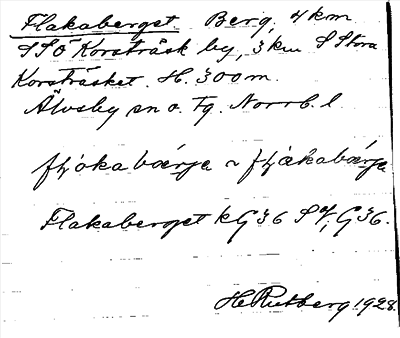 Flakaberget. Berg, 4 km
SSO Korsträsk by, 3 km S Stora
Korsträsket. H. 300 m.
Älvsby sn o. Tg. Norrb. l.
fḷḁkabærjə ~ fḷækabærjə
Flakaberget kG36 S f, G36.
H Rutberg 1928.